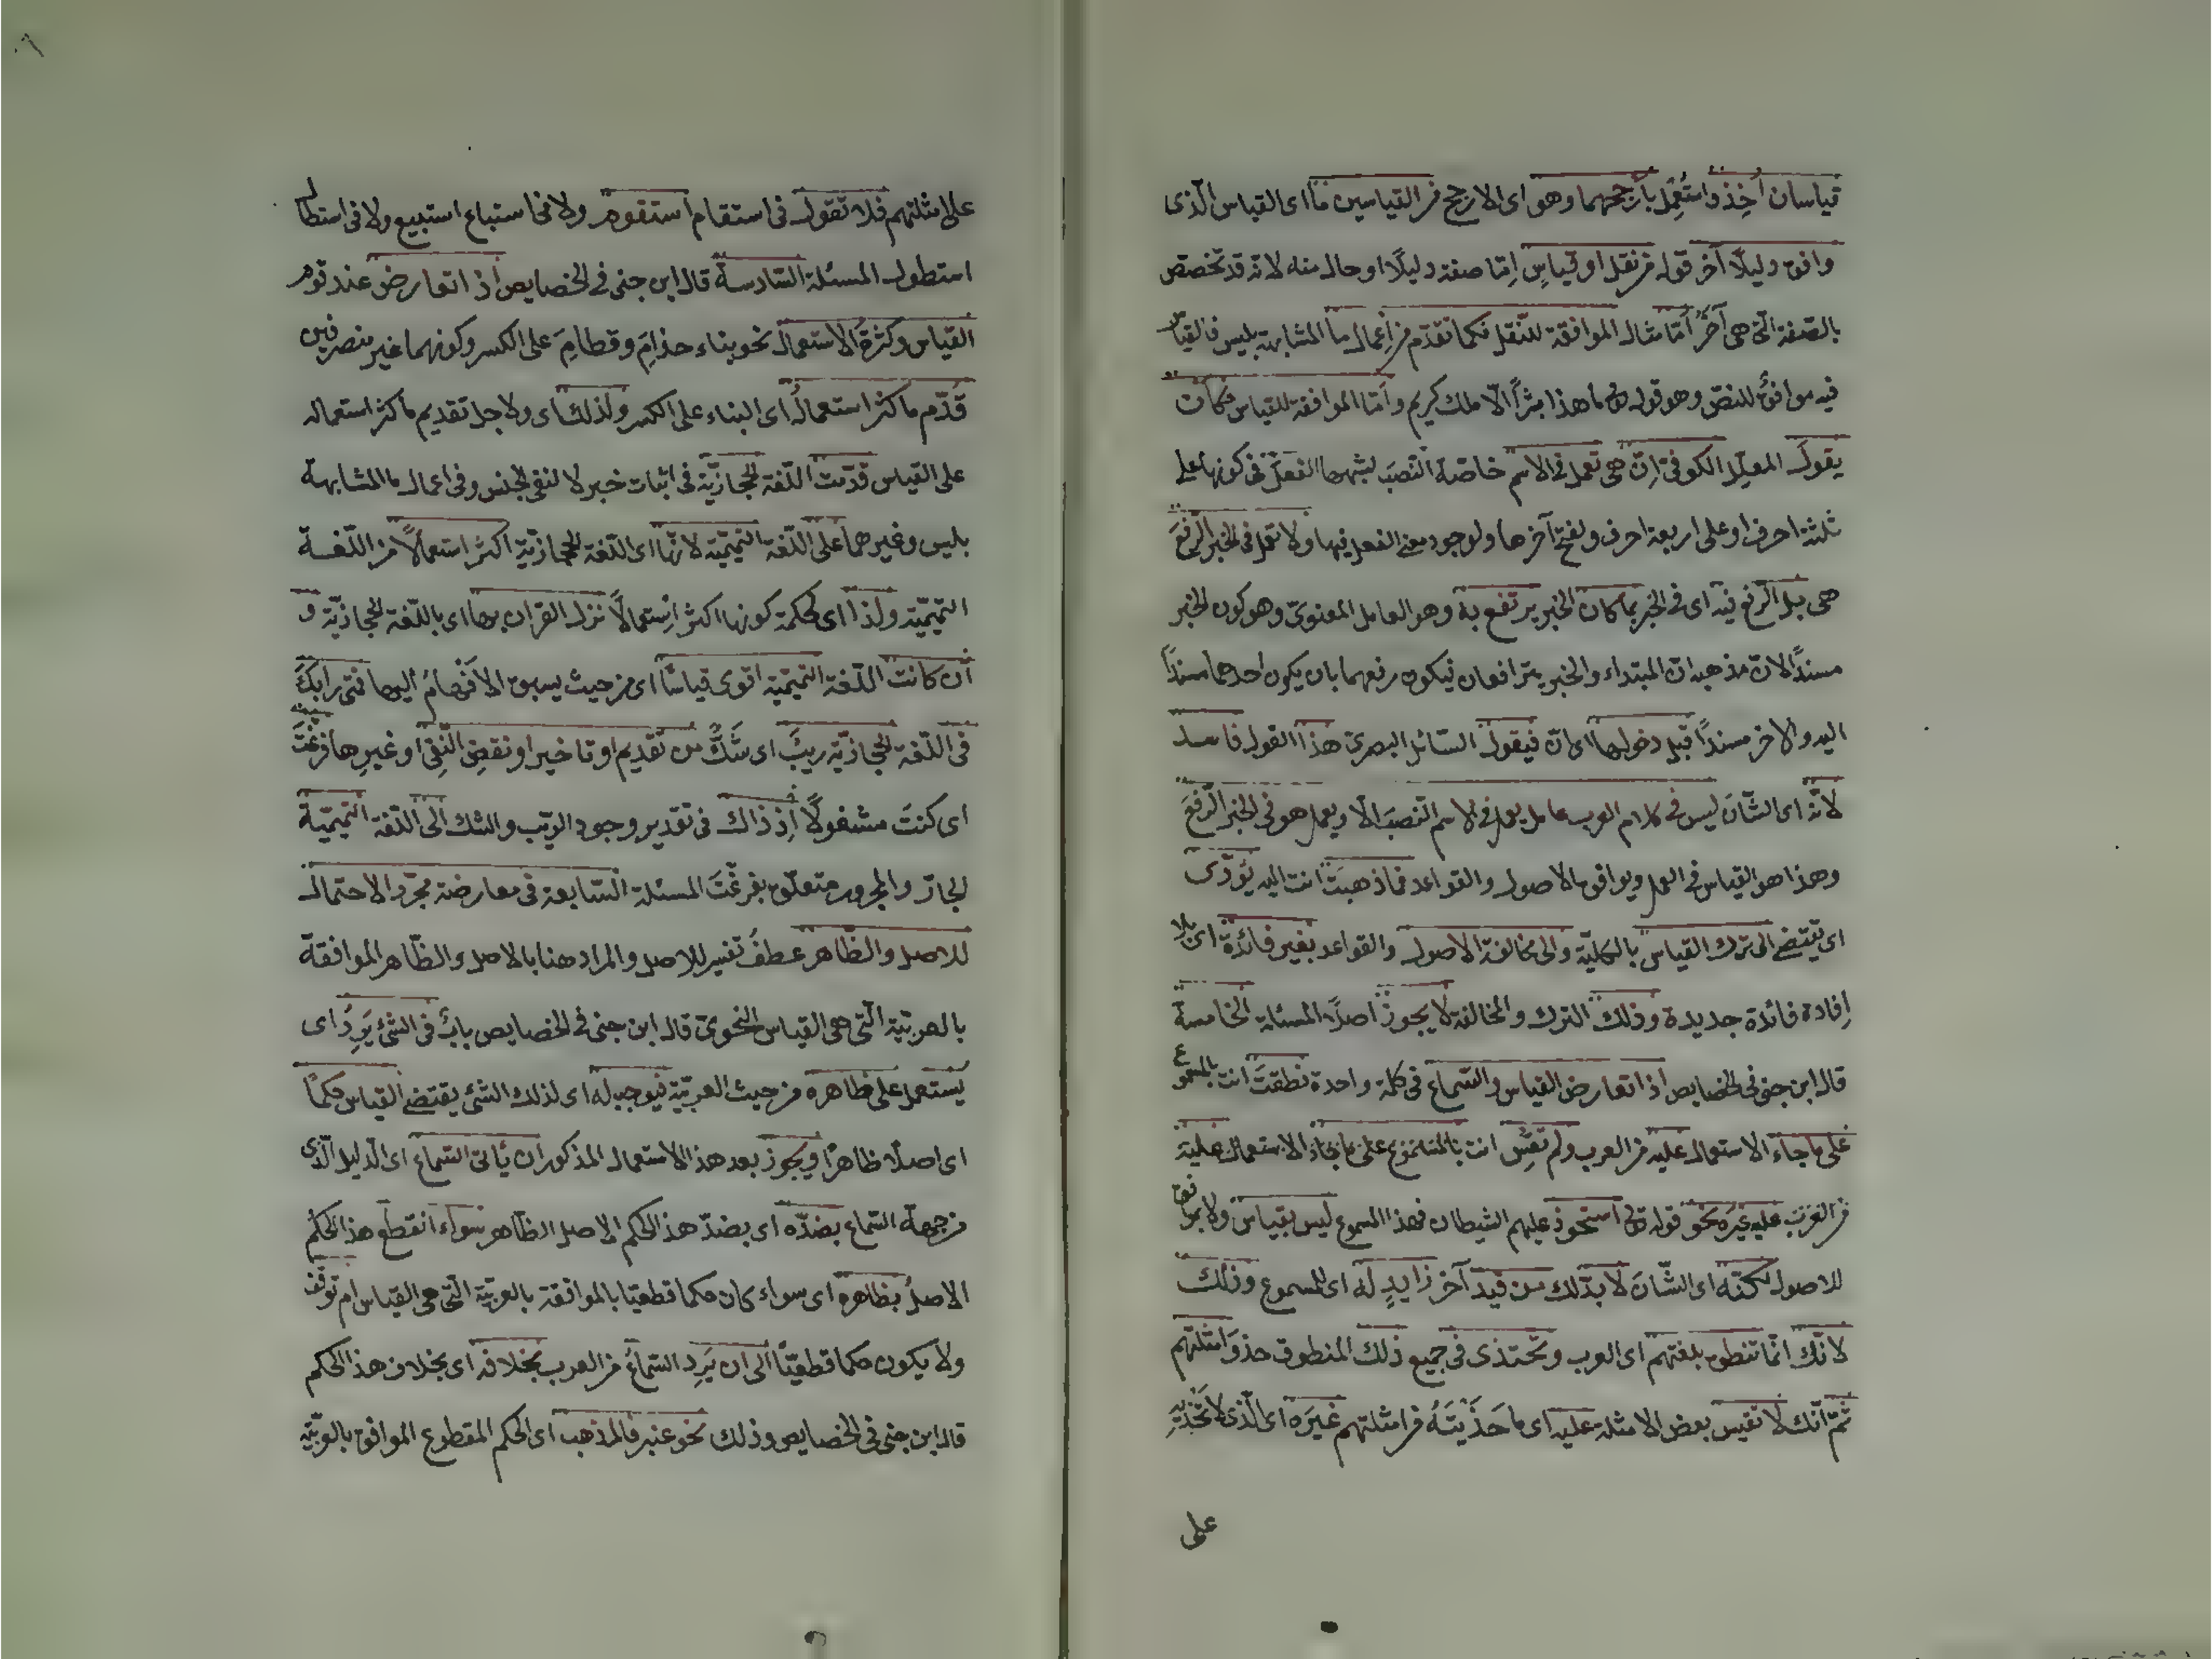 قياسان أُخِذ واستُعمِل بأرجحهما وهو اى الارجح من القياسين ما اى القياس الّذى
وافق دليلًا آخر قوله من نقل او قياسٍ إمّا صفة دليلًا او حال منه لانه قد تخصص
بالصّفة الّتى هى آخرُ أمّا مثال الموافقة للنّقل فكما تقدّم من إعمال ما المشابهة بليس فالقياس
فيه موافقٌ للنصّ وهو قوله تع ما هذا بشراً الّا ملك كريم وأمّا الموافقة للقياس فكأن
يقولَ المعلّل الكوفىّ إنّ هى تعمل فى الاسم خاصّةً النّصبَ لشبهها الفعلَ فى كونها على
ثلثة احرف او على اربعة احرف ولفتح آخرها ولوجود معنى الفعل فيها ولا تعمل فى الخبر الرّفعَ
هى بل الرّفع فيه اى فى الخبر بما كان الخبر يرتفع به وهو العامل المعنوىّ وهو كون الخبر
مسندًا لانّ مذهبه انّ المبتداء والخبر يترافعان فيكون رفعهما بان يكون احدهما مسندًا
اليه والاخر مسندًا قبل دخولها اى انّ فيقول السّائل البصرىّ هذا القول فاسد
لانّه اى الشّانَ ليس فى كلام العرب عامل يعمل فى الاسم النّصبَ الّا ويعمل هو فى الخبر الرّفعَ
وهذا هو القياس فى العمل ويوافق الاصول والقواعد فما ذهبتَ انت اليه يؤدّى
اى يقتضى الى ترك القياس بالكليّة والى مخالفة الاصول والقواعد بغير فائدة اى بلا
إفادة فائدة جديدة وذلك الترك والمخالفة لا يجوز اصلًا المسئلة الخامسة
قال ابن جنى فى الخصايص اذا تعارض القياس والسّماع فى كلمة واحدة نطقتَ انت بالمسموع
على ما جاء الاستعمال عليه من العرب ولم تقِس انت بالمسموع على ما جاء الاستعمال عليه
من العرب عليه غيرَه نحو قوله تع استحوذ عليهم الشيطان فهذا المسموع ليس بقياس ولا بموافق
للاصول لكنّه اى الشّانَ لا بدّ لك من قيد آخر زايدٍ له اى للمسموع وذلك
لانّك انّما تنطق بلغتهم اى العرب وتحتذى فى جميع ذلك المنطوق حذوَ امثلتهم
ثمّ انّك لا تقيس بعض الامثلة عليه اى ما حَذَيْتَهُ من امثلتهم غيرَه اى الّذى لا تحتذيه
على
على امثلتهم فلا تقول فى استقام استقوم ولا فى استباع استبيع ولا فى استطال
استطول المسئلة السّادسة قال ابن جنى فى الخصايص اذا تعارض عند قوم
القياس وكثرةُ الاستعمال نحو بناء حذامِ وقطامِ على الكسر وكونهما غير منصرفين
قُدّم ما كثر استعمالُه اى البناء على الكسر ولذلك اى ولاجل تقديم ما كثر استعماله
على القياس قدّمت اللّغة الحجازيّة فى اثبات خبر لا لنفى الجنس وفى اعمال ما المشابهة
بليس وغيرهما على اللّغة التميميّة لانّها اى اللّغة الحجازيّة اكثر استعمالًا من اللّغة
التميميّة ولذا اى لحكمة كونها اكثر استعمالًا نزل القران بها اى باللّغة الحجازيّة و
ان كانت اللّغة التميميّة اقوى قياسًا اى من حيث يسبق الافهامُ اليها فمتى رابكَ
فى اللّغة الحجازيّة ريبَ اى شكٌّ من تقديم او تاخير او نقضِ النّفى او غيرِها فرغتَ
اى كنتَ مشغولًا إذ ذاك فى تقدير وجود الريب والشك الى اللّغة التميميّة
الجارّ والمجرور متعلّق بفرغتَ المسئلة السّابعة فى معارضة مجرّد الاحتمال
للاصل والظّاهر عطفُ تفسير للاصل والمراد هنا بالاصل والظّاهر الموافقة
بالعربيّة الّتى هى القياس النّحوىّ قال ابن جنى فى الخصايص بابٌ فى الشئ يَرِدُ اى
يُستعمل على ظاهره من حيث العربيّة فيوجب له اى لذلك الشئ يقتضى القياس حكمًا
اى اصلًا ظاهرًا ويجوز بعد هذا الاستعمال المذكور ان ياتى السّماع اى الدليل الّذى
من جهة السّماع بضدّه اى بضدّ هذا الحكم الاصل الظّاهر سواء انقطع هذا الحكم
الاصلُ بظاهره اى سواء كان حكما قطعيًا بالموافقة بالعربيّة الّتى هى القياس ام توقّف
ولا يكون حكما قطعيًّا الى ان يَرِد السّماعُ من العرب بخلافه اى بخلاف هذا الحكم
قال ابن جنى فى الخصايص وذلك نحو عنبر فالمذهب اى الحكم المقطوع الموافق بالعربيّة